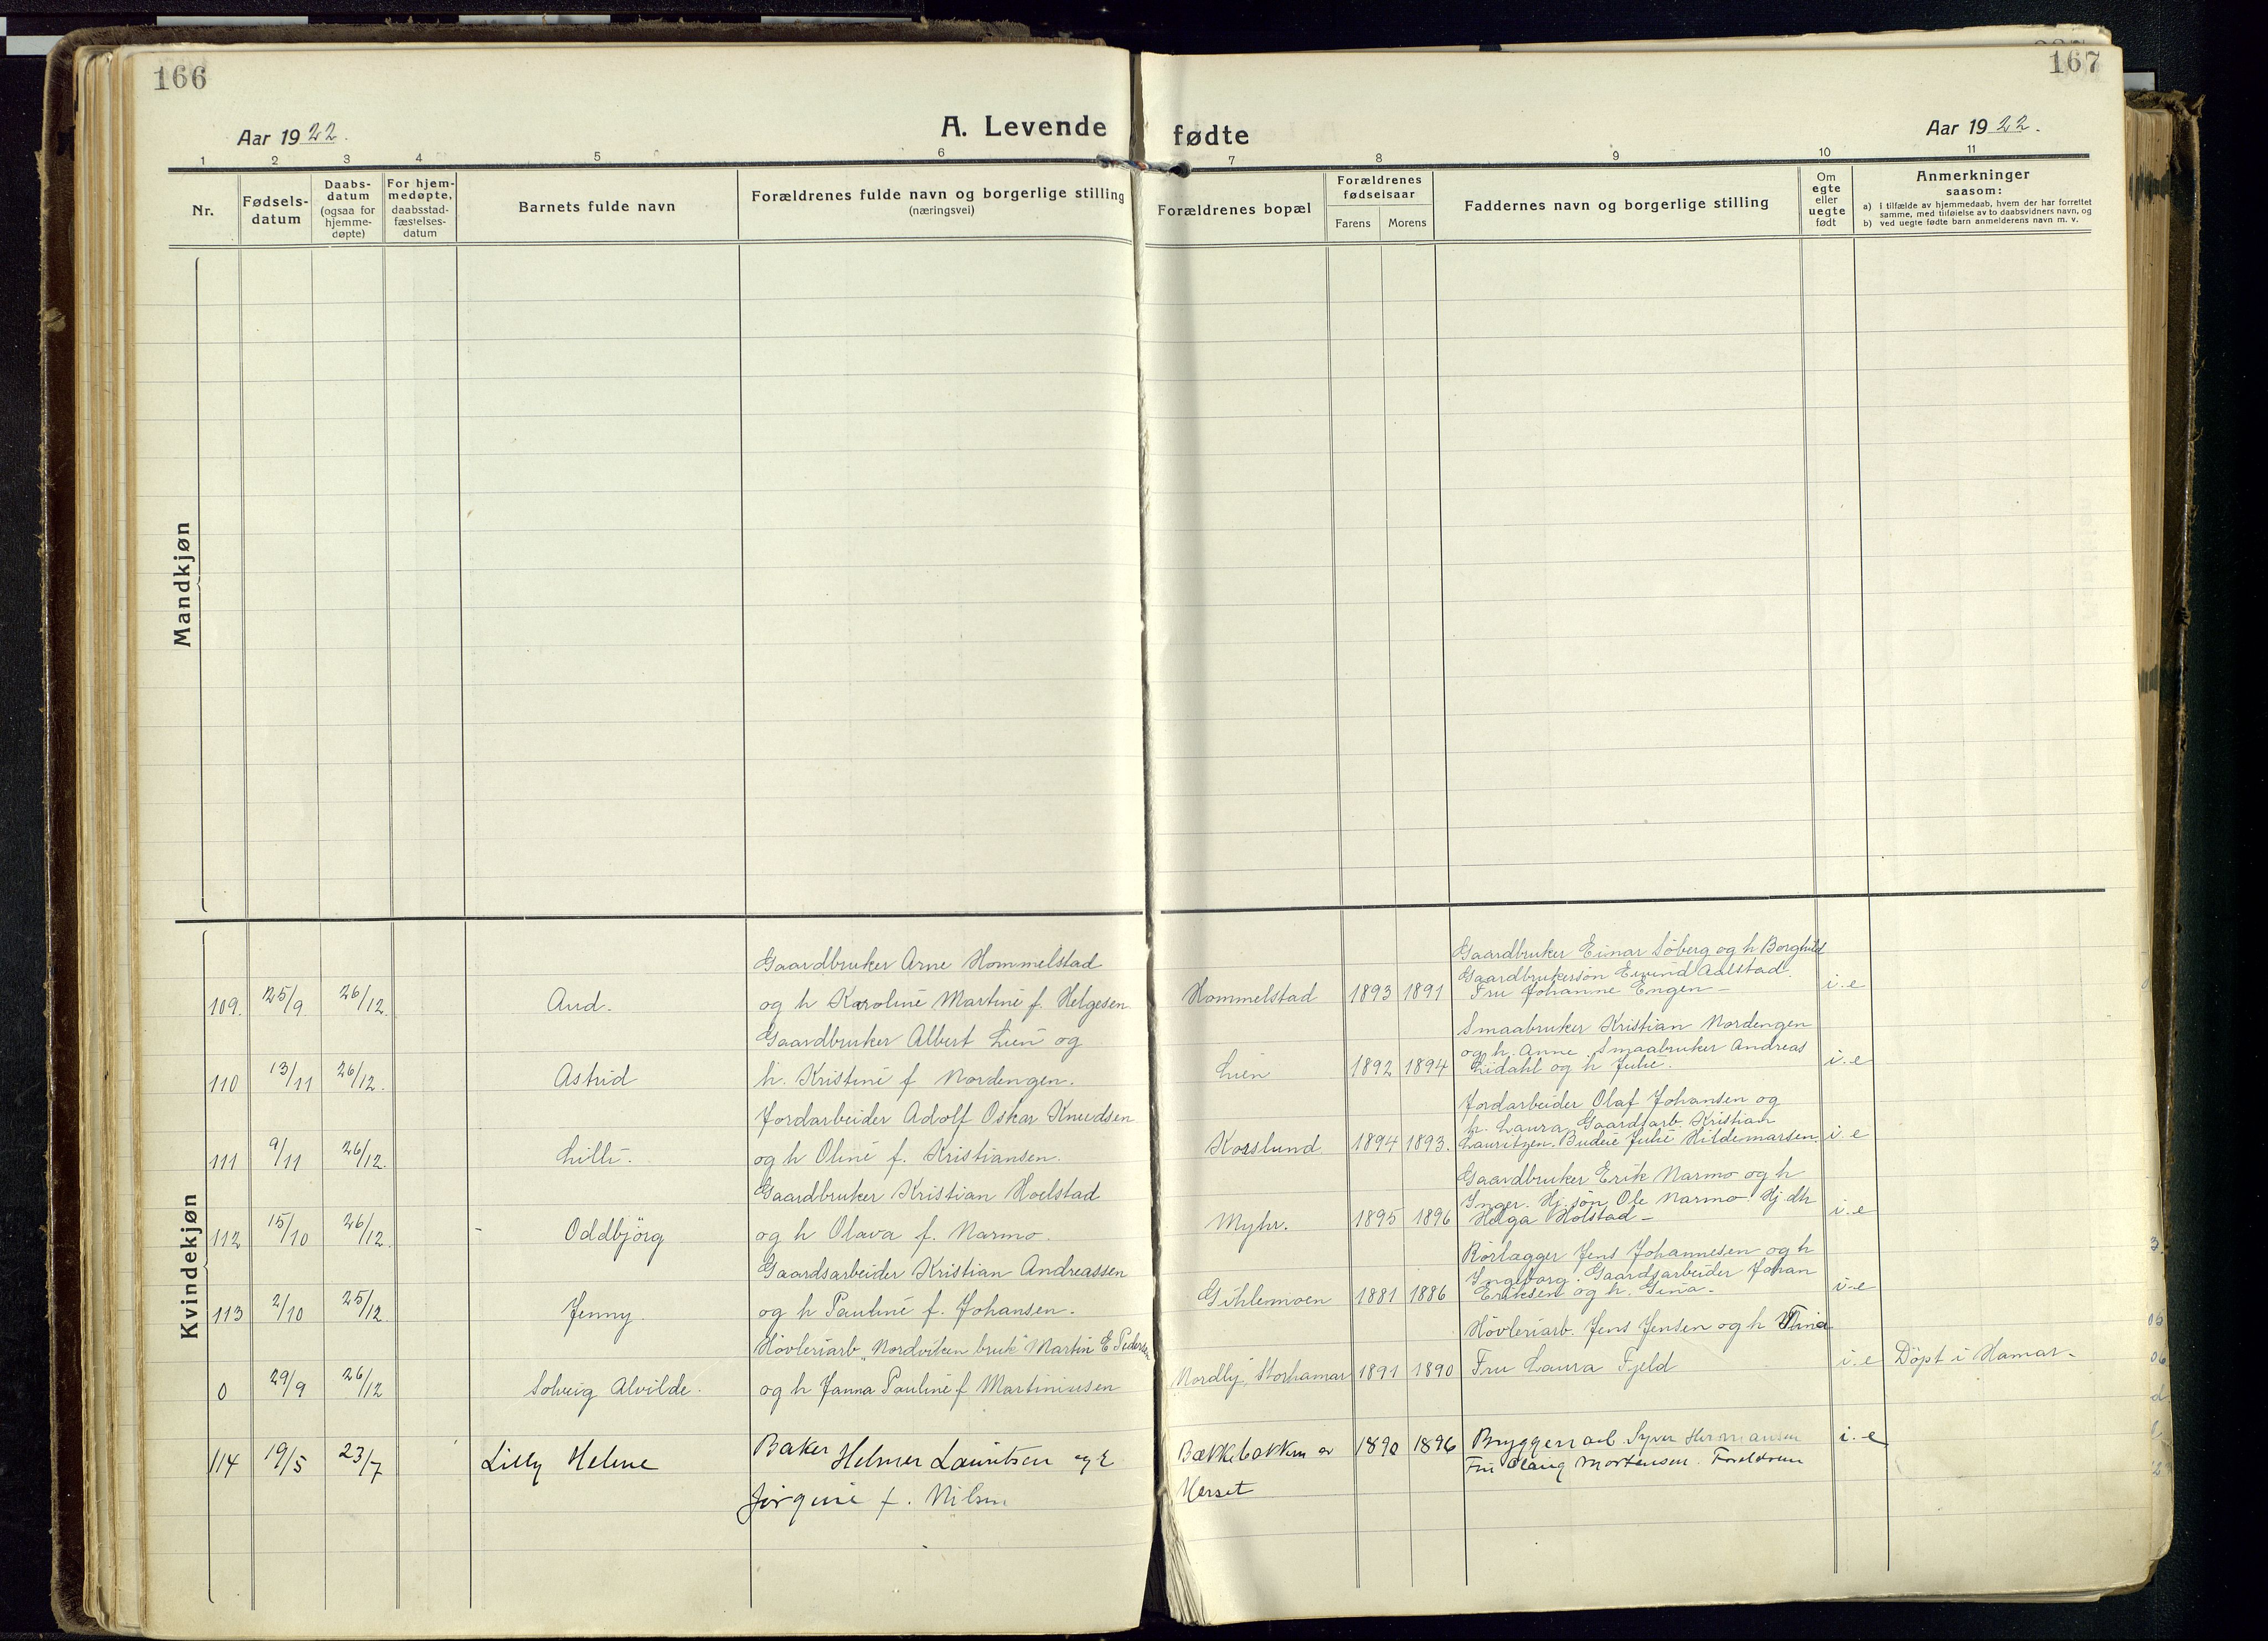 166
167
Aar 1922.
A. Levende fødte
Aar 1922.
1 2 3 4 5 6 7 8 9 10 11
Nr.
Fødsels-
datum
Daabs-
datum
(ogsaa for
hjemme-
døpte)
For hjem-
medøpte,
daabsstad-
fæstelses-
datum
Barnets fulde navn
Forældrenes fulde navn og borgerlige stilling
(næringsvei)
Forældrenes bopæl
Forældrenes
fødselsaar
Farens Morens
Faddernes navn og borgerlige stilling
Om
egte
eller
uegte
født
Anmerkninger
saasom:
a) I tilfælde av hjemmedaab, hvem der har forrettet
samme, med tilføielse av to daabsvidners navn, og
b) ved uegte fødte barn anmelderens navn m. v.
Mandkjøn
Kvindekjøn
109. 25/9 26/12. Aud.
Gaardbruker Arne Hommelstad
og h Karoline Martine f. Helgesen
Hommelstad 1893 1891
Gaardbruker Einar Söberg og h Borghild
Gaardbrukersön Eivind Aalstad.
Fru Johanne Engen -
i. e
110 13/11 26/12. Astrid
Gaardbruker Albert Lien og
h. Kristine f Nordengen.
Lien 1892 1894
Smaabruker Kristian Nordengen
og h. Anne. Smaabruker Andreas
Lidahl og h Julie.
i. e
111 9/11 26/12. Lilli.
Jordarbeider Adolf Oskar Knudsen
og h Oline f. Kristiansen.
Korslund 1894 1893.
Jordarbeider Olaf Johansen og
h. Laura. Gaardsarb. Kristian
Lauritzen. Budeie Julie Hildemarsen
i. e
112 15/10 26/12. Oddbjörg
Gaardbruker Kristian Hoelstad
og h Olava f. Narmo.
Myhr. 1895 1896
Gaardbruker Erik Narmo og h
Inger. Hj. sön Ole Narmo Hj. dtr
Helga Holstad -
i. e
113 2/10 25/12. Jenny.
Gaardsarbeider Kristian Andreassen
og h Pauline f. Johansen.
Gihlemoen 1881 1886
Rörlægger Jens Johannesen og h
Ingeborg. Gaardsarbeider Johan
Eriksen og h. Gina.
i. e
0 29/9 26/12 Solveig Alvilde.
Hövleriarb. "Nordviken bruk" Martin E Pedersen
og h Janna Pauline f Martiniusen
Nordly, Storhamar 1891 1890
Hövleriarb. Jens Jensen og h Thina
Fru Laura Fjeld
i. e Döpt i Hamar.
114 19/5 23/7 Lilly Helene
Baker Helmer Lauritsen og h
Jörgine f. Nilsen
Bækkebakken av
Herset
1890 1896
Bryggeriarb. Syver Hermansen
Fru Olaug Mortensen. Foreldrene
i. e